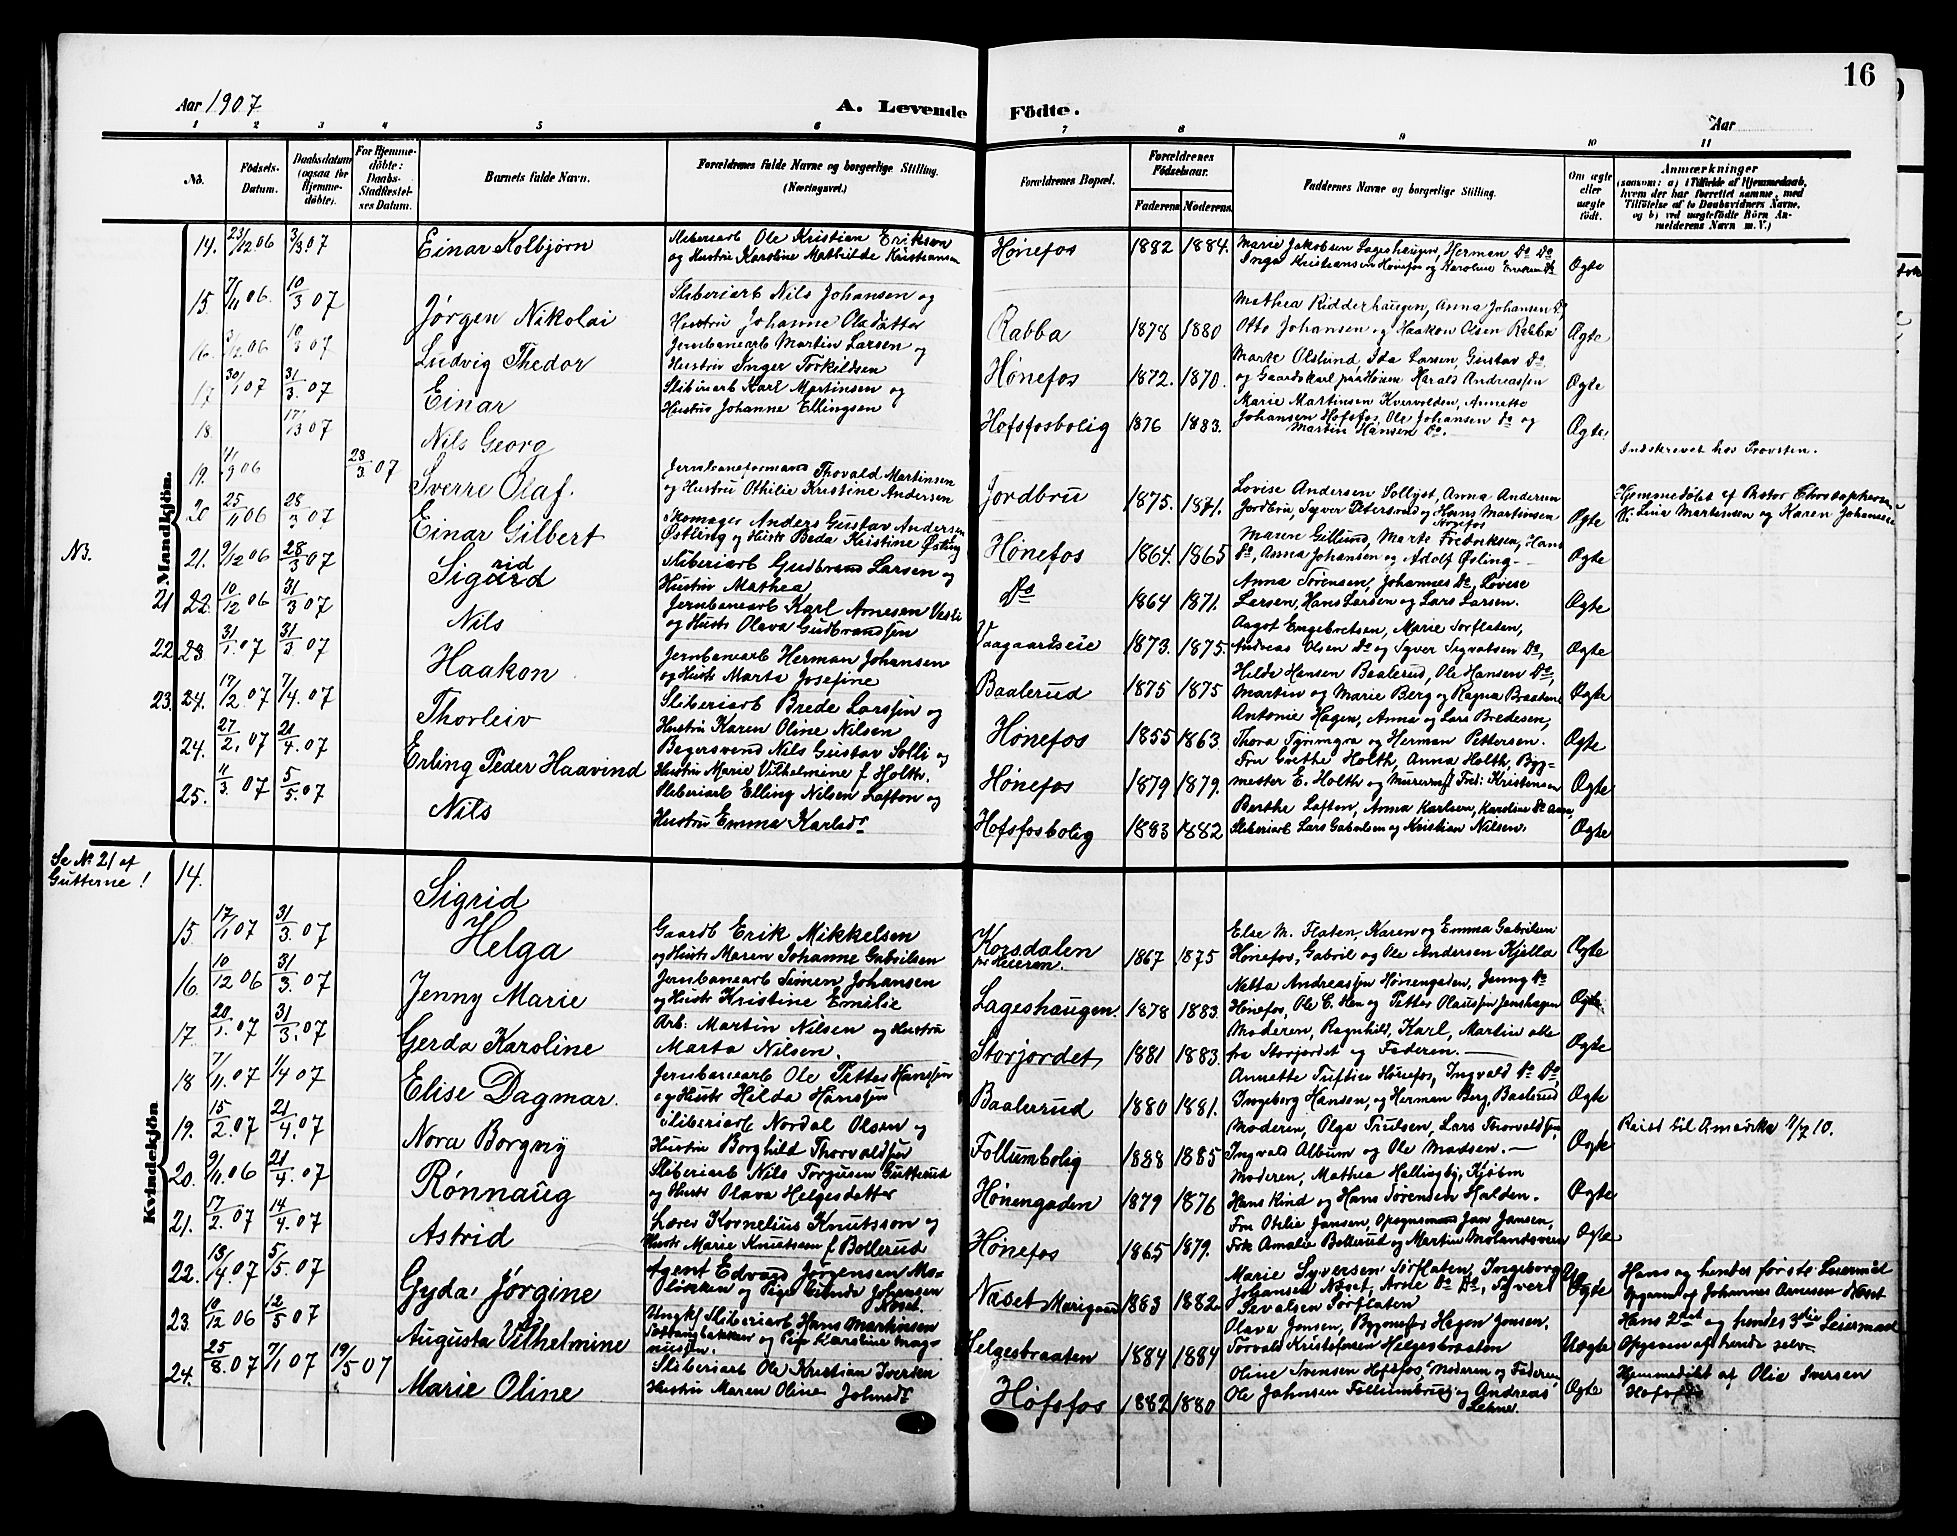 16
Aar 1907
A. Levende Födte.
Aar
1 2 3 4 5 6 7 8 9 10 11
No.
Födsels-Datum.
Daabsdatum (ogsaa for Hjemme-döbte).
For Hjemme-döbte: Daabs-Stadfæstel-ses Datum.
Barnets fulde Navn.
Forældrenes fulde Navne og borgerlige Stilling. (Næringsvei.)
Forældrenes Bopæl.
Forældrenes Födselsaar.
Faderens Moderens
Faddernes Navne og borgerlige Stilling.
Om ægte eller uægte födt.
Anmærkninger
(saasom: a) i Tilfælde af Hjemmedaab, hvem der har forrettet samme, med Tilföielse af to Daabsvidners Navne, og b) ved uægtefödte Börn An-melderens Navn m. V.)
Mandkjön.
14. 23/12 06 3/3 07 Einar Kolbjörn
Sliberiarb Ole Kristian Erikson
og Hustru Karoline Mathilde Kristiansen
Hönefos 1882 1884.
Marie Jakobsen Lageshaugen, Herman Do Do
Inga Kristiansen Hönefos og Karoline
Ægte
15. 7/11 06 10/3 07 Jörgen Nikolai
Sliberiarb Nils Johansen og
Hustru Johanne Olsdatter
Rabba 1878 1880
Mathea Ridderhaugen, Anna Johansen Do,
Otto Johansen og Haakon Olsen Rabba
Ægte
16. 3/12 06 10/3 07 Ludvig Thedor
Jernbanearb Martin Larsen og
Hustru Inger Torkildsen
Hönefos 1872. 1870.
Marte Olslund, Ida Larsen, Gustav Do
og Gaardskarl paa Hönen Harald Andreassen
Ægte
17 30/1 07 31/3. 07 Einar
Sliberiarb Karl Martinsen og
Hustru Johanne Ellingsen
Hofsfosbolig 1876 1883.
Marie Martinsen Kvervolden, Annette
Johansen Hofsfos, Ole Johansen do og
Martin Hansen Do.
Ægte
18. 17/3 07 Nils Georg
Indskrevet hos Provsten.
19. 9 06 28/3 07 Sverre Olaf.
Jernbaneformand Thorvald Martinsen
og Hustru Othilie Kristine Andersen
Jordbru 1875. 1871.
Lovise Andersen Sollyst, Anna Andersen
Jordbru, Syver Petersrud og Hans Martinsen
Hönefos
Ægte
Hjemmedöbt af Pastor Christophersen
V: Lina Martinsen og Karen Johansen
20 25/11 06 28/3 07 Einar Gilbert
Skomager Anders Gustav Andersen
Östling og Hustr Beda Kristine Östling
Hönefos 1864. 1865
Maren Gillund, Marte Fredriksen, Hans
Do, Anna Johansen og Adolf Östling -
Ægte
NB.
21. 9/12 06 28/3 07 Sigurd
rid
Sliberiarb Gudbrand Larsen og
Hustru Mathea
Do 1864 1871.
Anna Sörensen, Johannes Do, Lovise
Larsen, Hans Larsen og Lars Larsen.
Ægte
21 22. 10/12 06 31/3 07 Nils
Jernbanearb Karl Arnesen
og Hustr Olava Gudbrandsen
Vaagaardseie 1873. 1875.
Aagot Engebretsen, Marie Torflaten,
Andreas Olsen Do og Syver Sigvatsen Do,
Ægte
22 23 31/1. 07 31/3 07 Haakon
Jernbanearb Herman Johansen
og Hustr Marta Josefine
Baalerud 1875 1875
Hilda Hansen Baalerud, Ole Hansen Do,
Martin og Marie Berg og Ragna Braaten
Ægte
23. 24. 17/2. 07 7/4. 07 Thorleiv
Sliberiarb Brede Larsen og
Hustru Karen Oline Nilsen
Hönefos 1855 1863.
Antonie Hagen, Anna og Lars Bredesen,
Thora og Herman Pettersen.
Ægte
24. 27/2. 07 21/4. 07 Erling Peder Haavind
Bagersvend Nils Gustav Solli og
Hustru Marie Vilhelmine f. Holth.
Hönefos 1879 1879.
Fru Grethe Holth, Anna Holth, Byg-
mester E. Holth og Murerm. Fred: Kristensen
Ægte
25. 11/3. 07 5/5. 07 Nils
Sliberiarb Elling Nilsen Lofton og
Hustru Emma Karlsdr
Hofsfosbolig 1883 1882
Berthe Lofton, Anna Karlsen, Karoline Do
Sliberiarb Lars Gabrilsen og Kristian Nilsen.
Ægte
Kvindekjön
Se No 21 af
Gutterne!
14. Sigrid
15. 17/1 07 31/3. 07 Helga
Gaardb Erik Mikkelsen
og Hustr Maren Johanne Gabrilsen
Korsdalen 1867 1875
Else M. Flaten, Karen og Emma Gabrilsen
Hönefos, Gabril og Ole Andersen Kjella
Ægte
16. 10/12 06 31/3. 07 Jenny Marie
Jernbanearb Simen Johansen
og Hustr Kristine Emilie
Lageshaugen. 1878 1883.
Netta Andreassen Hönengaden, Jenny Do
Hönefos, Ole C. Hen og Petter Olaussen
Ægte
17. 20/1. 07 31/3. 07 Gerda Karoline
Arb: Martin Nilsen og Hustru
Marta Nilsen.
Storjordet 1881 1883.
Moderen, Ragnhild, Karl, Martin alle
fra Storjordet og Faderen. -
Ægte
18 7/11. 07 1/4 07 Elise Dagmar.
Jernbanearb Ole Petter Hansen
og Hustr Hilda Hansen
Baalerud 1880 1881.
Annette Tuftin Hönefos, Ingvald Do Do,
Ingeborg Hansen, og Herman Berg, Baalerud
Ægte
19. 15/2. 07 21/4. 07 Nora Borgny
Sliberiarb Nordal Olsen og
Hustru Borghild Thorvaldsen
Follumbolig 1888 1885
Moderen, Olga Trulsen, Lars Thorvaldsen,
Ingvald Album og Ole Madsen. -
Ægte
Reist til Amerika 10.
20. 9/11 06 21/4. 07 Rönnaug
Sliberiarb Nils Torgusen Gutterud
og Hustr Olava Helgesdatter
Hönengaden 1879 1876
Moderen, Mathea Hallingby, Kjöbm
Hans Kind og Hans Sörensen Halden.
Ægte
21. 17/2. 07 14/4. 07 Astrid
Lærer Kornelius Knutsson og
Hustr Marie Knutsen f. Bollerud
Hönefos 1865 1879.
Fru Otilie Jansen, Opsynsmand Jan Jansen,
Frk Amalie Bollerud og Martin
Ægte
22. 13/4. 07 5/5. 07 Gyda Jörgine
Agent Edvard Jörgensen Mo-
lökken og Pige Gunda Johansen
Næset
Næset 1883 1882
Marie Syversen Torflaten, Ingeborg
Johansen Næset, Arne Do Do, Syvert
Sevalsen Torflaten
Uægte
Hans og hendes første Leiermaal
Opgivet af Johannes Arnesen Næset
23. 10/12 06 12/5 07 Augusta Vilhelmine
Ungk Sliberiarb Hans Martinsen
og Pige Karoline Mag-
nussen
Helgesbraaten 1884 1884
Olava Jonsen, Bygmester Hagen Jonsen,
Torvald Kristofersen Helgesbraaten
Uægte
Hans 2det og hendes 3die Leiermaal
Opgiven af hende selv -
24. 25/8. 07 7/1 07 19/5 07 Marie Oline
Sliberiarb Ole Kristian Iversen
Hustru Maren Oline Johnsdr
Höfsfos 1882 1880
Oline Svensen Hofsfos, Moderen og Faderen
Ole Johnsen Follumbrug og Andreas
Lehne.
Ægte
Hjemmedöbt af Olia Iversen
Hofsfos